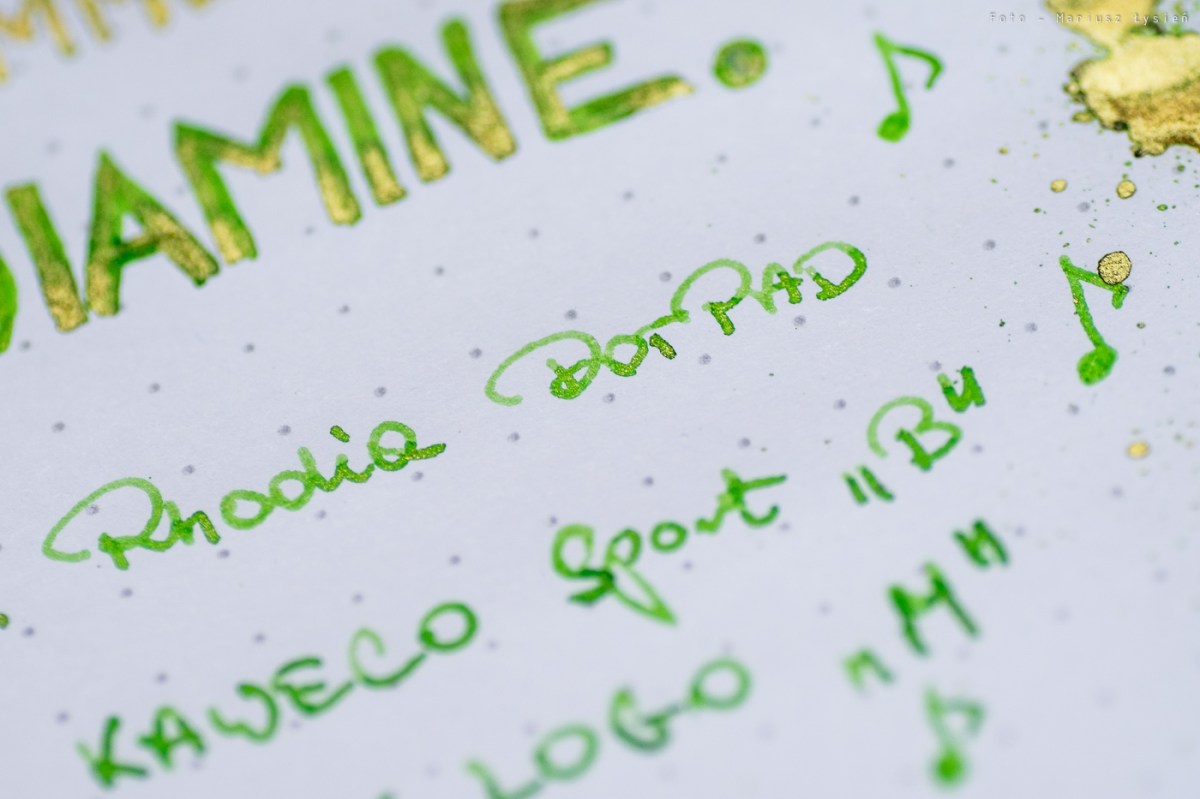 Foto - Mariusz Łysień
DIAMINE.
Rhodia DotPAD
KAWECO Sport "B"
LOGO "M"